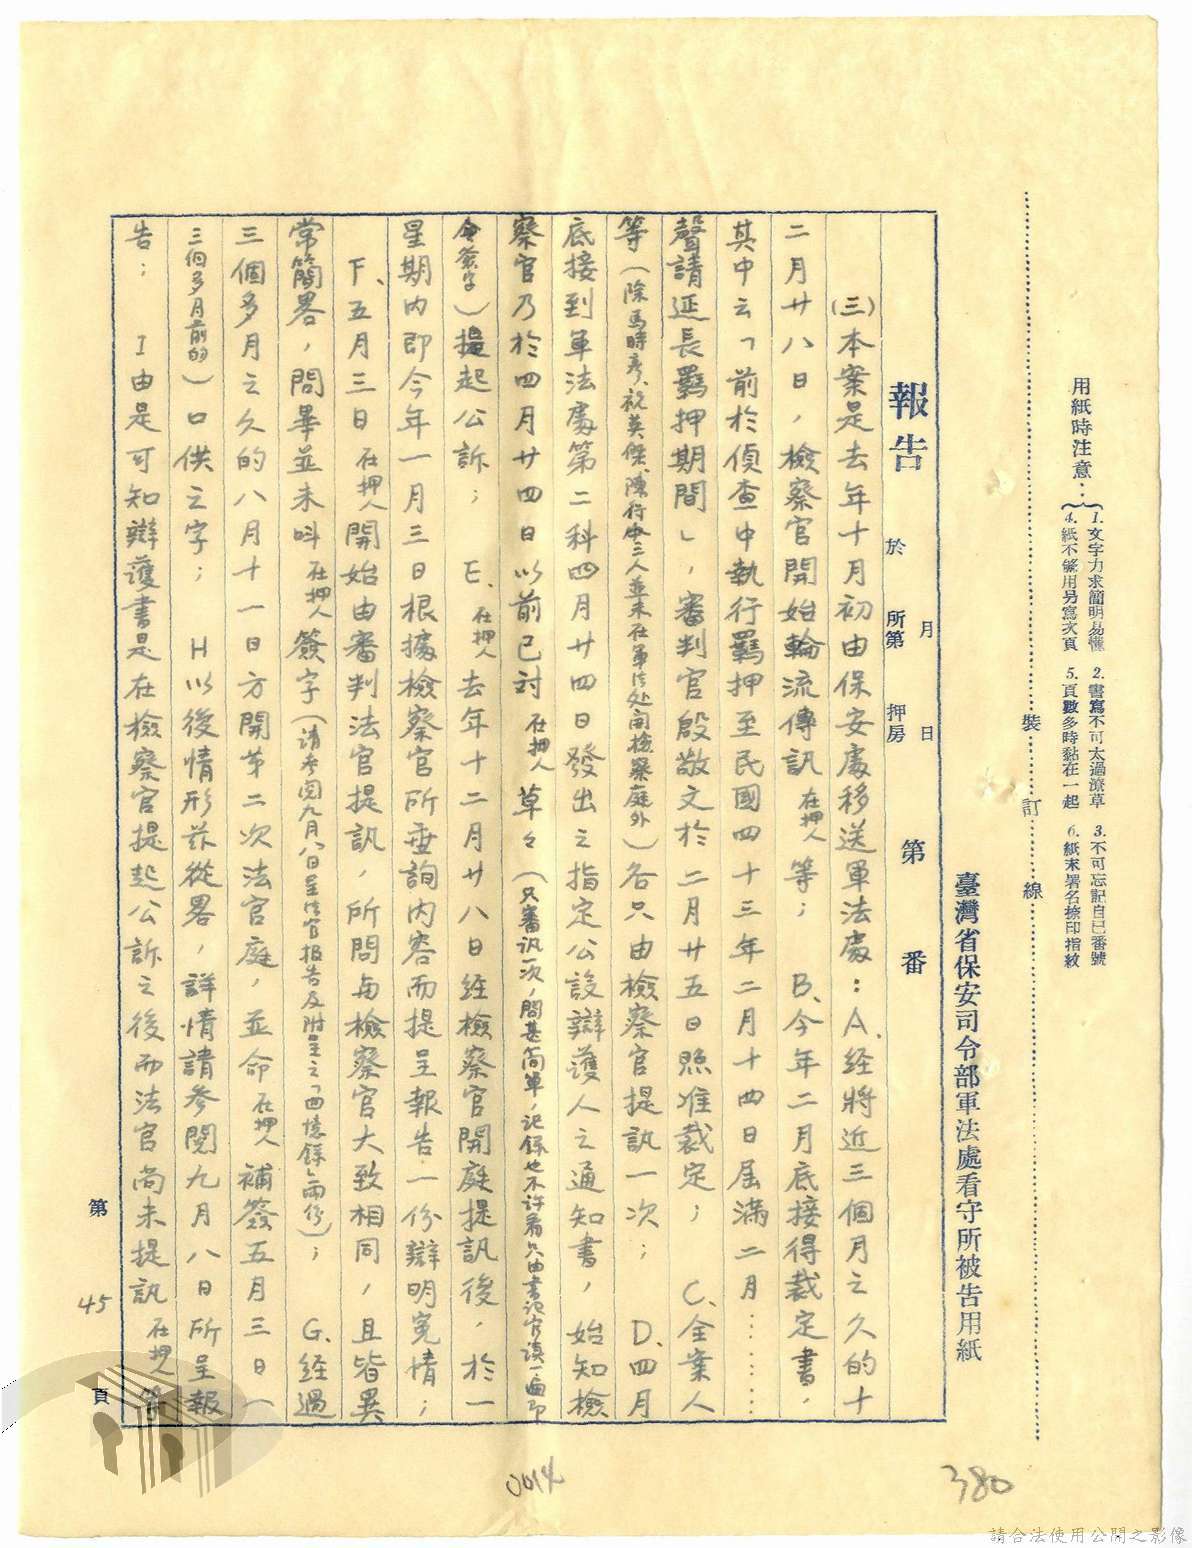 用紙時注意：
1. 文字力求簡明易懂 2. 書寫不可太過潦草 3. 不可忘記自已番號
4. 紙不够用另寫次頁 5. 頁數多時黏在一起 6. 紙末署名捺印指紋
裝訂線
臺灣省保安司令部軍法處看守所被告用紙
報告 於 月 日
所第 押房 第 番
(三)本案是去年十月初由保安處移送軍法處：A、经將近三個月之久的十
二月廿八日，檢察官開始輪流傳訊在押人等； B、今年二月底接得裁定書，
其中云「前於偵查中執行羈押至民國四十三年二月十四日屆滿二月……
聲請延長羈押期間」，審判官殷敬文於二月廿五日照准裁定； C、全案人
等（除馬時彥、祝英傑、陳行中三人並未在軍法处開檢察庭外）各只由檢察官提訊一次； D、四月
底接到軍法處第二科四月廿四日發出之指定公設辯護人之通知書，始知檢
察官乃於四月廿四日以前已对在押人草々（只審訊一次，問甚简單，记録也不許看只由書记官读一遍即
令簽字）提起公訴； E、在押人去年十二月廿八日经檢察官開庭提訊後，於一
星期內即今年一月三日根據檢察官所查詢内容而提呈報告一份辯明冤情；
F、五月三日在押人開始由審判法官提訊，所問与檢察官大致相同，且皆異
常簡畧，問畢並未叫在押人簽字（请參閱九月八日呈法官报告及附呈之「回憶録」兩份）； G、经過
三個多月之久的八月十一日方開第二次法官庭，並命在押人補簽五月三日（
三個多月前的）口供之字； H以後情形茲從畧，詳情請參閱九月八日所呈報
告； I由是可知辯護書是在檢察官提起公訴之後而法官尚未提訊在押人
第45頁
0014
380
請合法使用公開之影像